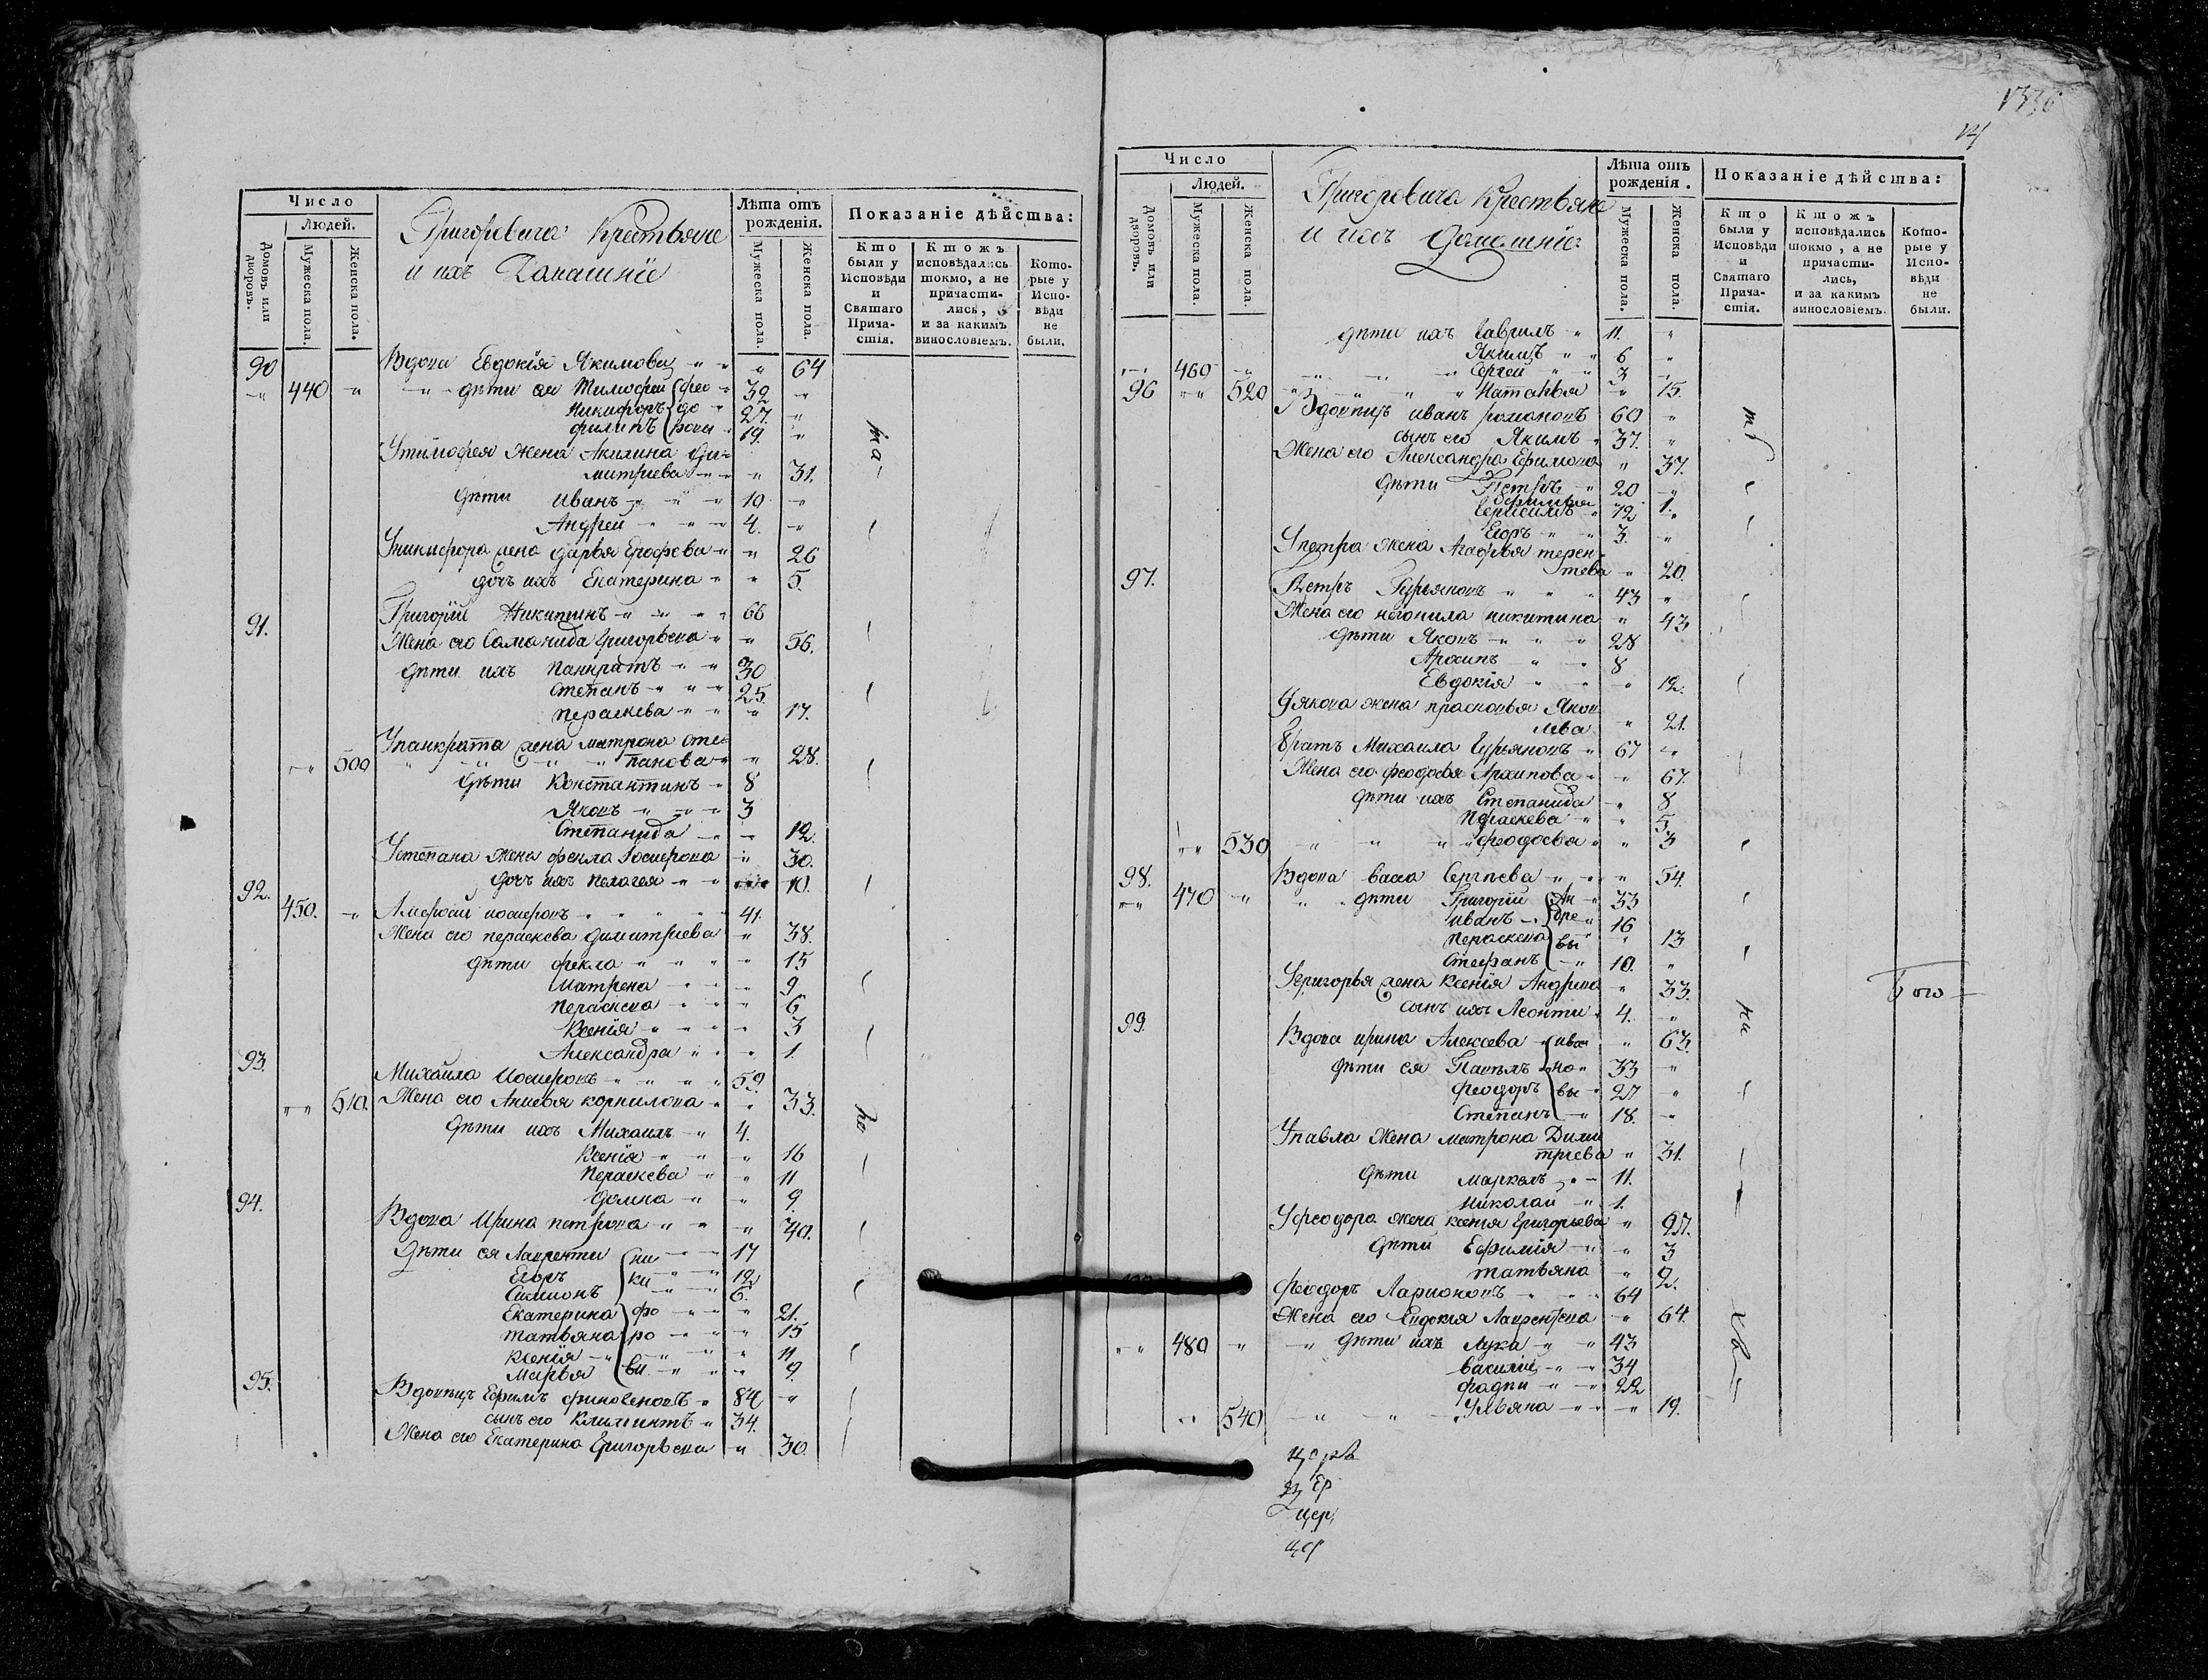 Число
Людей.
Домовъ или дворовъ.
Мужеска пола.
Женска пола.
Григоревича Крестьяне
и ихъ Домашніе
Лѣта отъ рожденія.
Мужеска пола.
Женска пола.
Показаніе дѣйства:
Кто были у Исповѣди и Святаго Причастія.
Ктожъ исповѣдались токмо, а не причастились, и за какимъ винословіемъ.
Которые у Исповѣди не были.
90 Вдова Евдокія Якимова " 64
" 440 " дѣти ея Тимофей фео 32 "
Никифоръ до 27. "
филипъ ровы 19. "
Утимофея жена Акилина Ди-
митриева " 31.
дѣти иванъ 10 "
Андрей 4. "
Уникифора жена дарья Ерофева " 26
дочь ихъ Екатерина " 5.
91. Григорій Никитинъ 66
Жена его Саманида Григорьева " 56.
дѣти ихъ панкратъ 30
степанъ 25.
пераскева " 17.
Упанкрата жена матрона сте-
" 500 панова " 28.
дѣти Константинъ 8
Яковъ 3
Степанида " 12.
Устепана жена фекла " 30.
дочь ихъ пелагея 10.
92.
450. " 41.
Жена его пераскева димитриева " 38.
дѣти фекла " 15
Матрена " 9
пераскева " 6
Ксенія " 3
Александра " 1.
93. Михайла 59.
" 510. Жена его корнилова " 33.
дѣти ихъ Михаилъ 4.
Ксенія " 16
Пераскева " 11
домна " 9.
94. Вдова Ирина петрова " 40.
дѣти ея Лаврентій ни 17
Егоръ ки 12
Симионъ 6.
Екатерина фо " 21.
татьяна ро " 15
ксенія " 11
Марья вы " 9.
95. Вдовецъ Ефимъ 84 "
сынъ его Климинтъ 34.
Жена его Екатерина Григорьева " 30.
1336
Число
Людей.
Домовъ или дворовъ.
Мужеска пола.
Женска пола.
Григоревича Крестьяне
и ихъ домашніе
Лѣта отъ рожденія.
Мужеска пола.
Женска пола.
Показаніе дѣйства:
Кто были у Исповѣди и Святаго Причастія.
Ктожъ исповѣдались токмо, а не причастились, и за какимъ винословіемъ.
Которые у Исповѣди не были.
дѣти ихъ Гаврилъ 11. "
Якимъ 6 "
460 " Сергей 3 "
96 " 520 Наталья " 15.
Вдовецъ иванъ романовъ 60 "
сынъ его Якимъ 37. "
Жена его Александра Ефимова " 37.
дѣти Петръ 20 "
1.
Герасимъ 12 "
Егоръ 3. "
Упетра жена Агафья терен-
тева " 20.
97. Петръ Гурьяновъ 43 "
Жена его никитина " 43
дѣти Яковъ 28
Архипъ 8
Евдокія " 12.
Уякова жена прасковья Яков
лева " 21.
братъ Михаила Гурьяновъ 67 "
Жена его феодосья Архипова " 67.
дѣти ихъ Степанида " 8
Пераскева " 5.
" 530 феодосья " 3
98. Вдова васа Сергѣева " 54.
" 470 " дѣти Григорій Ан 33
иванъ дре 16
пераскева вы " 13
Стефанъ 10. "
Угригорья жена Ксенія Андрева " 33.
сынъ ихъ Леонти 4. "
99. Вдова ирина Алексева ива " 63.
дѣти ея Павелъ но 33 "
феодоръ вы 27 "
Степанъ 18. "
Упавла жена матрона Дими
триева " 31.
дѣти Маркелъ 11.
николай 1.
Уфеодора жена ксенія Григорьева " 27.
дѣти Ефимія " 3
татьяна " 2.
феодоръ Ларионовъ 64
Жена его Евдокія Лаврентева " 64.
" 480 " дѣти ихъ Лука 43
василій 34
фадѣи 22
" 540 Ульяна " 19.